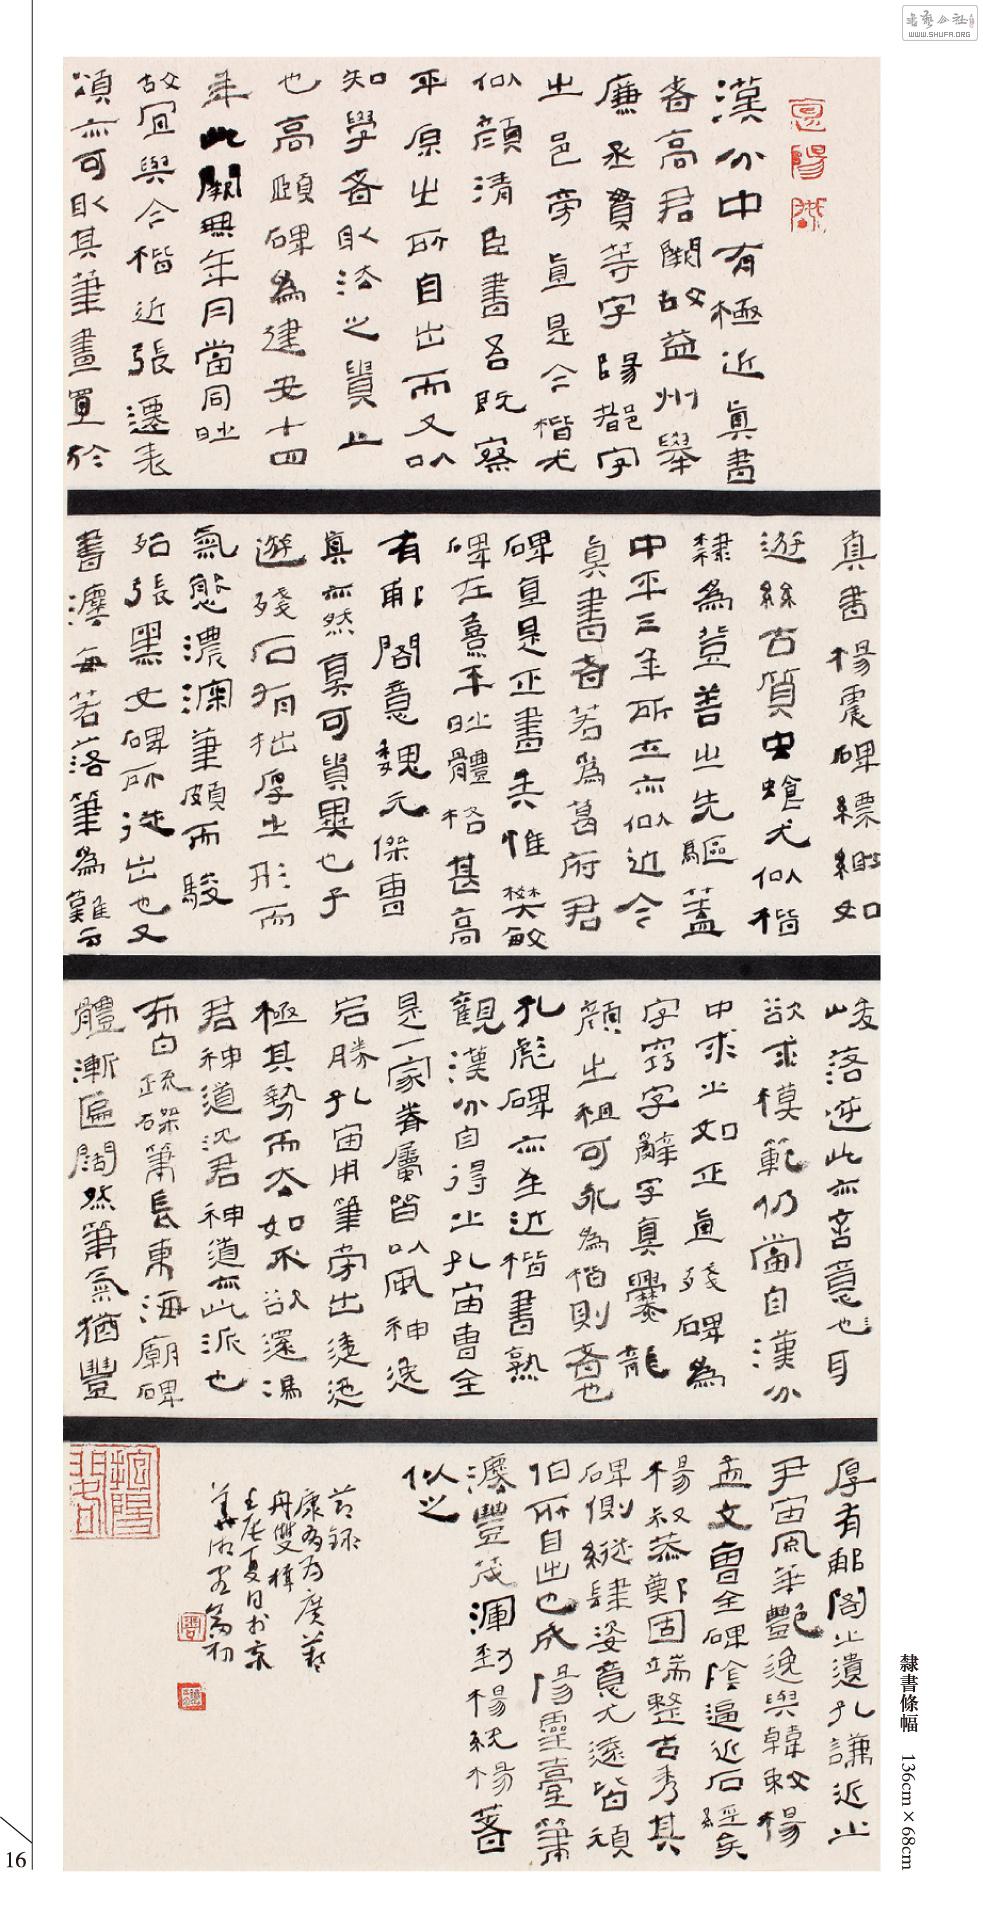 漢分中有極近真書
者高君闕故益州舉
廉丞貫等字陽都字
之邑旁直是今楷尤
似顏清臣書吾既察
平原之所自出而又以
知學者取法之貴上
也高頤碑為建安十四
年此闕無年月當同時
故宜與今楷近張遷表
頌亦可取其筆畫置於
真書楊震碑縹緲如
遊絲古質中蟠尤似楷
隸為登善之先驅蓋
中平三年所立亦似近今
真書者若為葛府君
碑直是正書矣惟樊敏
碑在熹平時體格甚高
有郙閣意魏元丕曹
真亦然真可貴異也子
遊殘石有拙厚之形而
氣態濃深筆頗而駿
殆張黑女碑所從出也又
書法每苦落筆為難云
峻落逆此亦言意也耳
欲求模範仍當自漢分
中求之如正直殘碑為
字窈字辭字真爨龍
顏之祖可永為楷則者也
孔彪碑亦至近楷書熟
觀漢分自得之孔宙曹全
是一家眷屬皆以風神逸
宕勝孔宙用筆旁出逶迤
極其勢而去如不欲還馮
君神道沈君神道亦此派也
布白疏磔筆長東海廟碑
體漸匾闊然筆氣猶豐
厚有郙閣之遺孔謙近之
尹宙風華艷逸與韓敕楊
孟文曹全碑陰逼近石經矣
楊叔恭鄭固端整古秀其
碑側縱肆姿意尤遠皆頑
伯所自出也成陽靈臺筆
法豐茂渾勁楊統楊著
似之
節錄
康有為廣藝
舟雙楫
隸書條幅 136cm×68cm
16
書藝公社
WWW.SHUFA.ORG